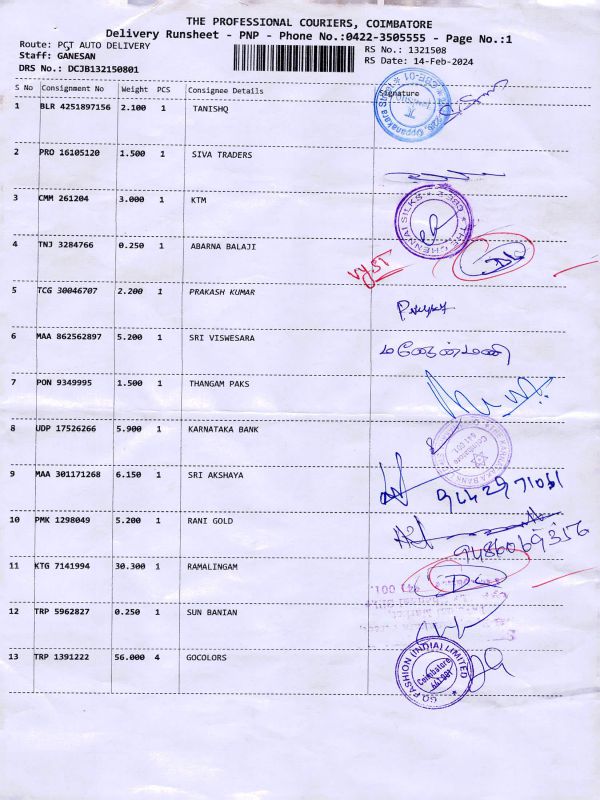 THE PROFESSIONAL COURIERS, COIMBATORE
Delivery Runsheet - PNP - Phone No.:0422-3505555 - Page No.:1
Route: PCT AUTO DELIVERY
RS No.: 1321508
Staff: GANESAN
RS Date: 14-Feb-2024
DRS No.: DCJB132150801
S No Consignment No Weight PCS Consignee Details Signature
1 BLR 4251897156 2.100 1 TANISHQ
2 PRO 16105120 1.500 1 SIVA TRADERS
3 CMM 261204 3.000 1 KTM
THE CHENNAI SILKS
4 TNJ 3284766 0.250 1 ABARNA BALAJI
5 TCG 30046707 2.200 1 PRAKASH KUMAR
6 MAA 862562897 5.200 1 SRI VISWESARA
7 PON 9349995 1.500 1 THANGAM PAKS
8 UDP 17526266 5.900 1 KARNATAKA BANK
9 MAA 301171268 6.150 1 SRI AKSHAYA
9442971031
10 PMK 1298049 5.200 1 RANI GOLD
9486069356
11 KTG 7141994 30.300 1 RAMALINGAM
12 TRP 5962827 0.250 1 SUN BANIAN
13 TRP 1391222 56.000 4 GOCOLORS
GO FASHION (INDIA) LIMITED
Coimbatore
641 001